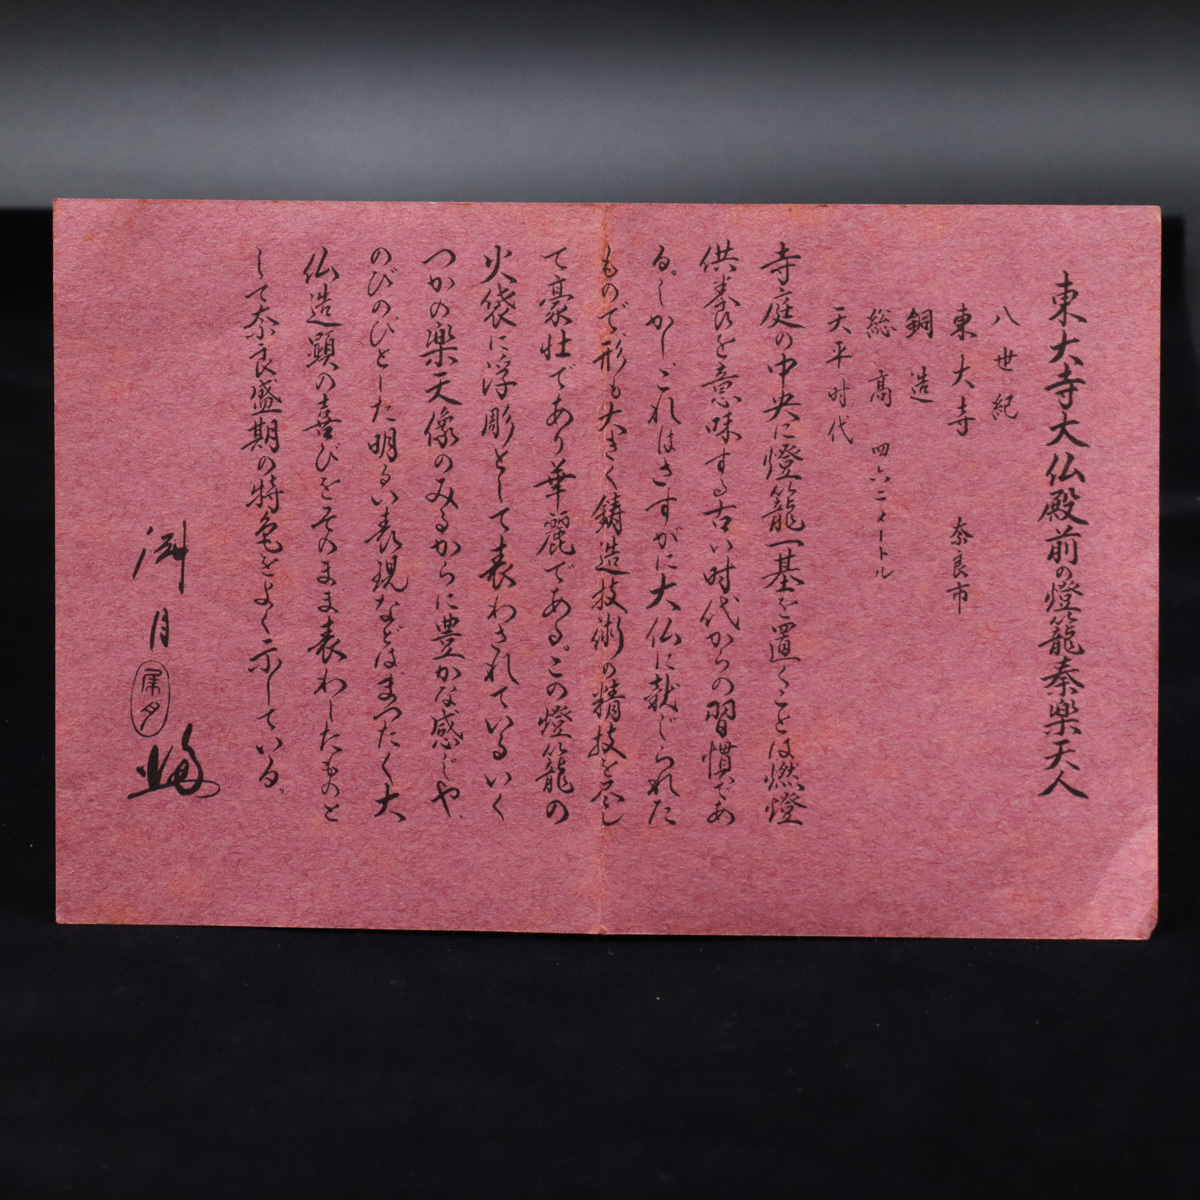 東大寺大仏殿前の燈籠奏楽天人
八世紀
東大寺 奈良市
銅造
総高 四六二メートル
天平时代
寺庭の中央に燈籠一基を置くことは燃燈
供養を意味する古い时代からの習慣であ
る。しかしこれはさすがに大仏に献じられた
もので形も大きく鋳造技術の精技を尽し
て豪壮であり華麗である。この燈籠の
火袋に浮彫として表わされているいく
つかの楽天像のみるからに豊かな感じや
のびのびとした明るい表現などはまったく大
仏造顕の喜びをそのまま表わしたものと
して奈良盛期の特色をよく示している。
月